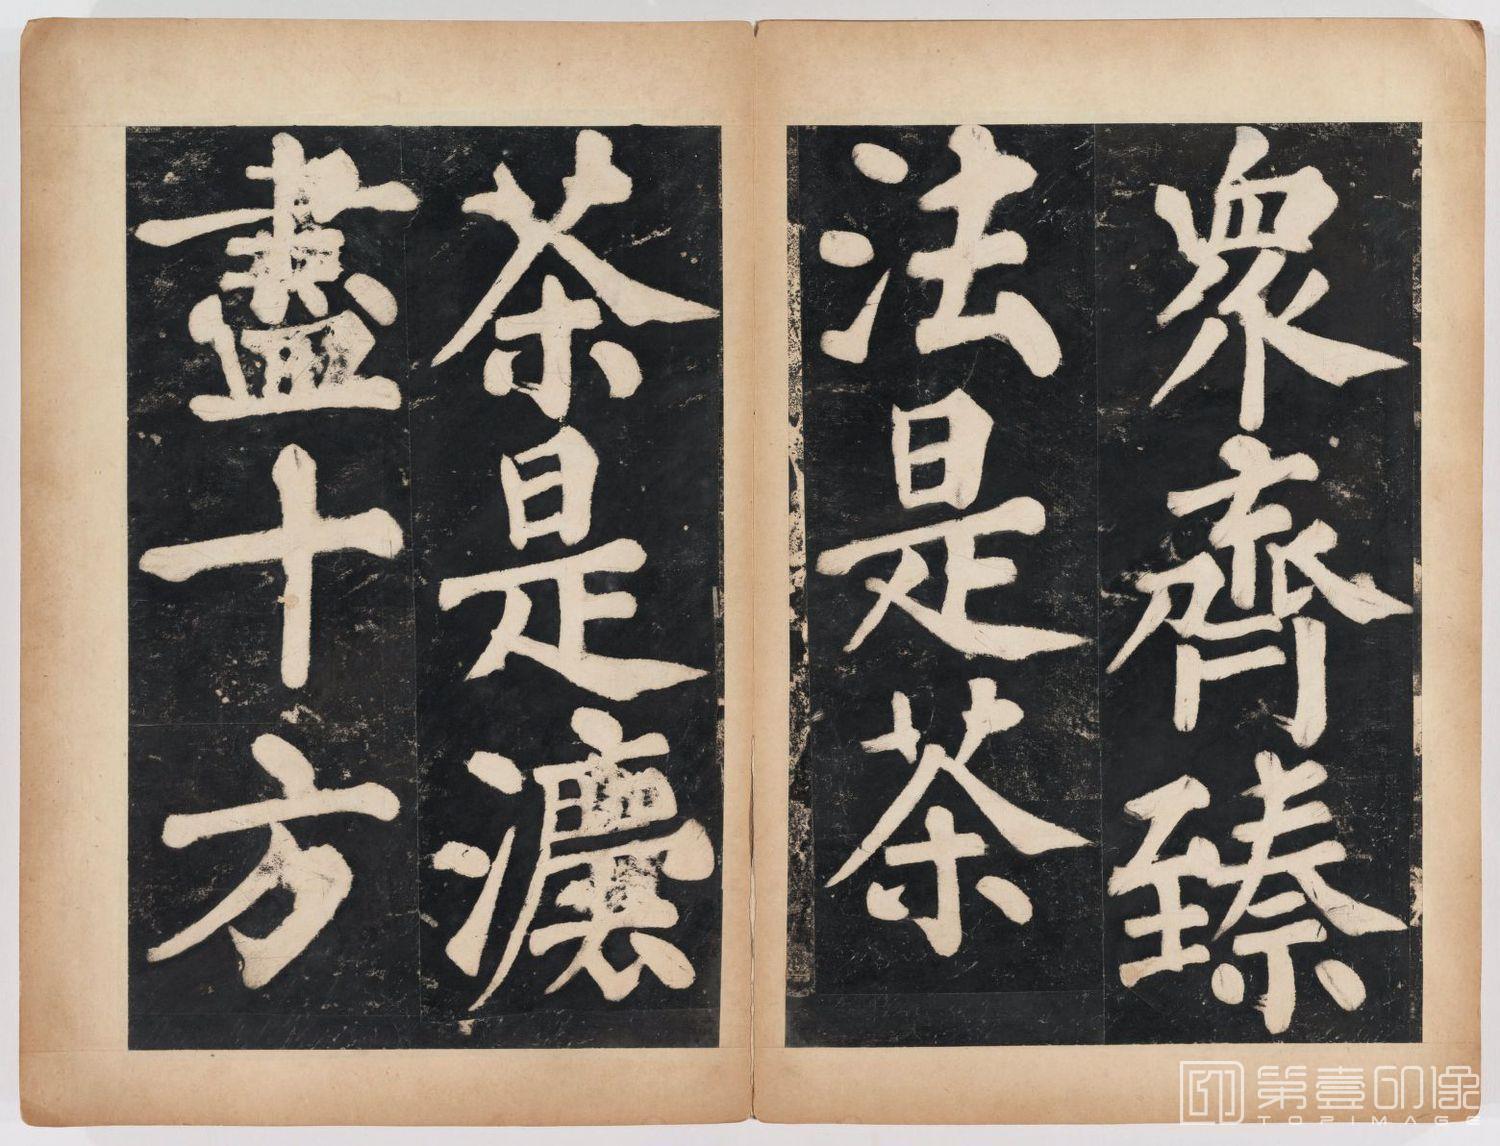 衆齊臻
法是茶
茶是灋
盡十方
第壹印像
TOPIMAGE